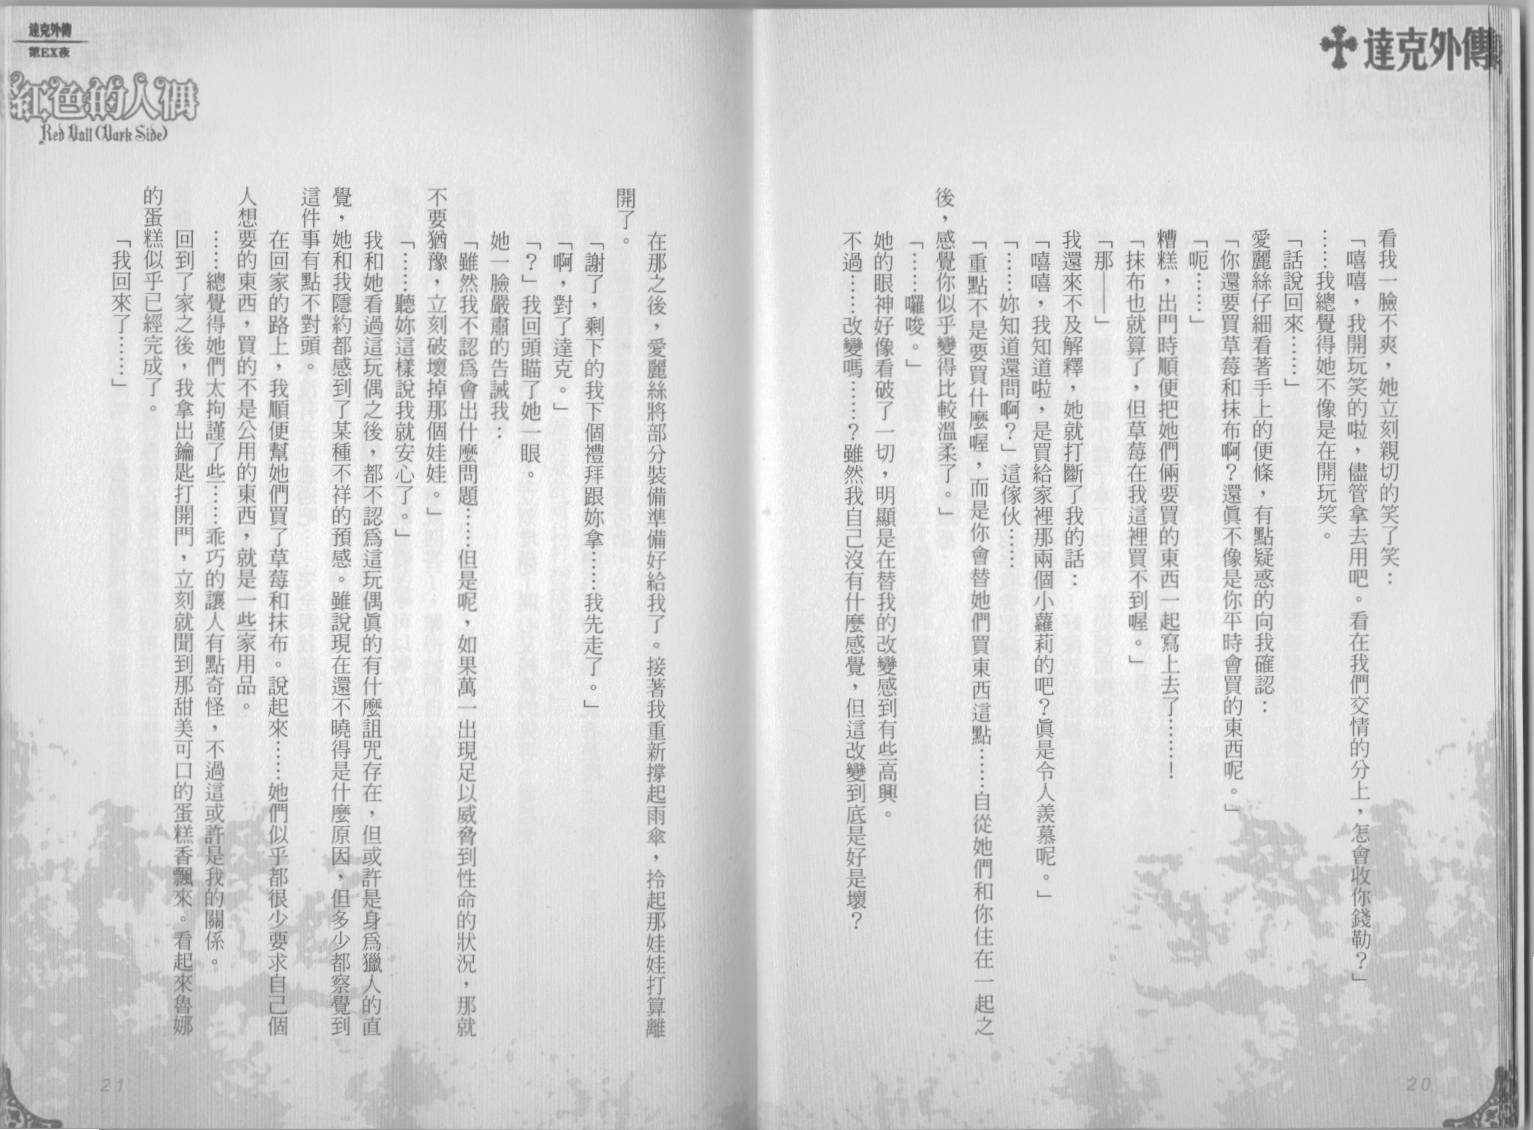 達克外傳
看我一臉不爽，她立刻親切的笑了笑：
「嘻嘻，我開玩笑的啦，儘管拿去用吧。看在我們交情的分上，怎會收你錢勒？」
……我總覺得她不像是在開玩笑。
「話說回來……」
愛麗絲仔細看著手上的便條，有點疑惑的向我確認：
「你還要買草莓和抹布啊？還眞不像是你平時會買的東西呢。」
「呃……」
糟糕，出門時順便把她們倆要買的東西一起寫上去了……！
「抹布也就算了，但草莓在我這裡買不到喔。」
「那——」
我還來不及解釋，她就打斷了我的話：
「嘻嘻，我知道啦，是買給家裡那兩個小蘿莉的吧？眞是令人羨慕呢。」
「……妳知道還問啊？」這傢伙……
「重點不是要買什麼喔，而是你會替她們買東西這點……自從她們和你住在一起之
後，感覺你似乎變得比較溫柔了。」
「……囉唆。」
她的眼神好像看破了一切，明顯是在替我的改變感到有些高興。
不過……改變嗎……？雖然我自己沒有什麼感覺，但這改變到底是好是壞？
20
達克外傳
第EX夜
紅色的人偶
Red Doll (Dark Side)
在那之後，愛麗絲將部分裝備準備好給我了。接著我重新撐起雨傘，拎起那娃娃打算離
開了。
「謝了，剩下的我下個禮拜跟妳拿……我先走了。」
「啊，對了達克。」
「？」我回頭瞄了她一眼。
她一臉嚴肅的告誡我：
「雖然我不認爲會出什麼問題……但是呢，如果萬一出現足以威脅到性命的狀況，那就
不要猶豫，立刻破壞掉那個娃娃。」
「……聽妳這樣說我就安心了。」
我和她看過這玩偶之後，都不認爲這玩偶眞的有什麼詛咒存在，但或許是身爲獵人的直
覺，她和我隱約都感到了某種不祥的預感。雖說現在還不曉得是什麼原因，但多少都察覺到
這件事有點不對頭。
在回家的路上，我順便幫她們買了草莓和抹布。說起來……她們似乎都很少要求自己個
人想要的東西，買的不是公用的東西，就是一些家用品。
……總覺得她們太拘謹了些……乖巧的讓人有點奇怪，不過這或許是我的關係。
回到了家之後，我拿出鑰匙打開門，立刻就聞到那甜美可口的蛋糕香飄來。看起來魯娜
的蛋糕似乎已經完成了。
「我回來了……」
21